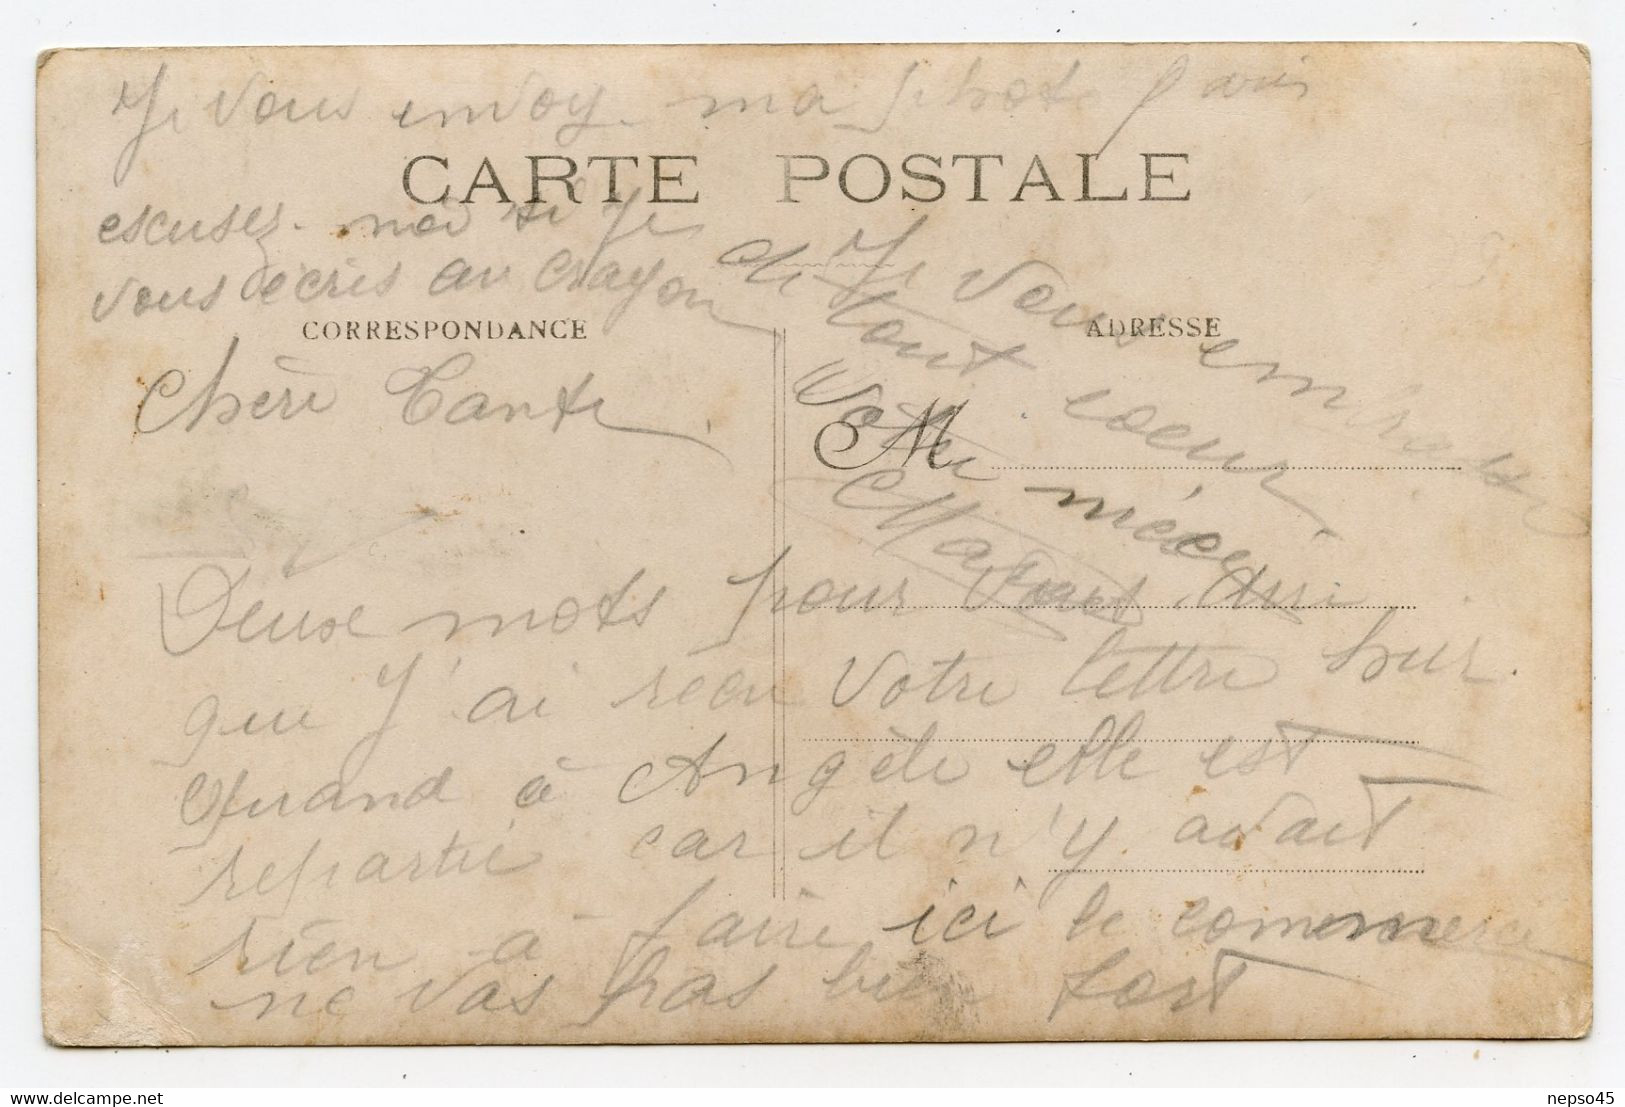 Je vous envoy. ma photo
CARTE POSTALE
escusez. moi si je
vous écris au crayon
CORRESPONDANCE
Chère Tante
ADRESSE
M
Deuse mots pour vous dire
que j'ai reçu votre lettre
Quand à Angèle elle est
repartie car il n'y avait
rien à faire ici le commerce
ne vas pas bien fort
Je vous embrasse
de tout coeur
Votre nièce
website: delcampe.net
nepso45